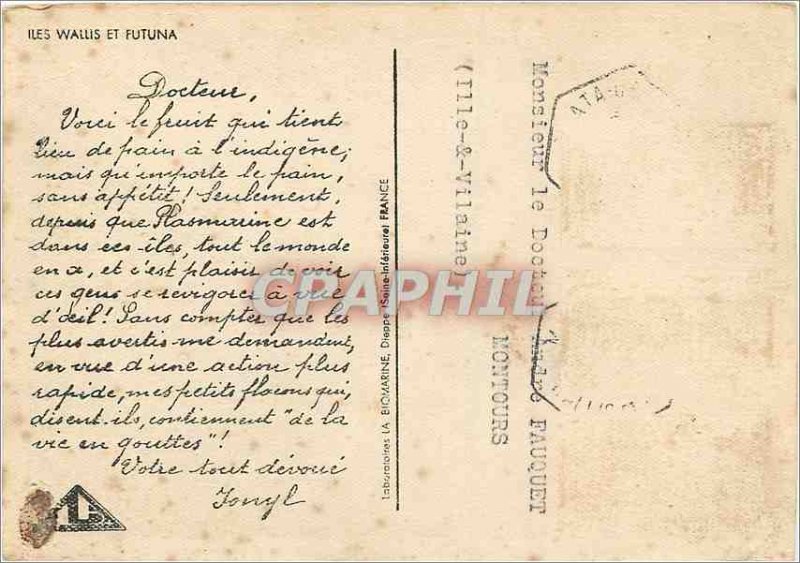 ILES WALLIS ET FUTUNA
Docteur,
Voici le fruit qui tient
lieu de pain à l'indigène;
mais qu'importe le pain,
sans appétit! Seulement,
depuis que Plasmarine est
dans ces îles, tout le monde
en a, et c'est plaisir de voir
ces gens se revigorer à vue
d'œil! Sans compter que les
plus avertis me demandent,
en vue d'une action plus
rapide, mes petits flacons qui,
disent-ils, contiennent "de la
vie en gouttes"!
Votre tout dévoué
Ionyl
Laboratoires LA BIOMARINE, Dieppe (Seine-Inférieure) FRANCE
Monsieur le Docteur André FAUQUET
MONTOURS
(Ille-&-Vilaine)
CPAPHIL